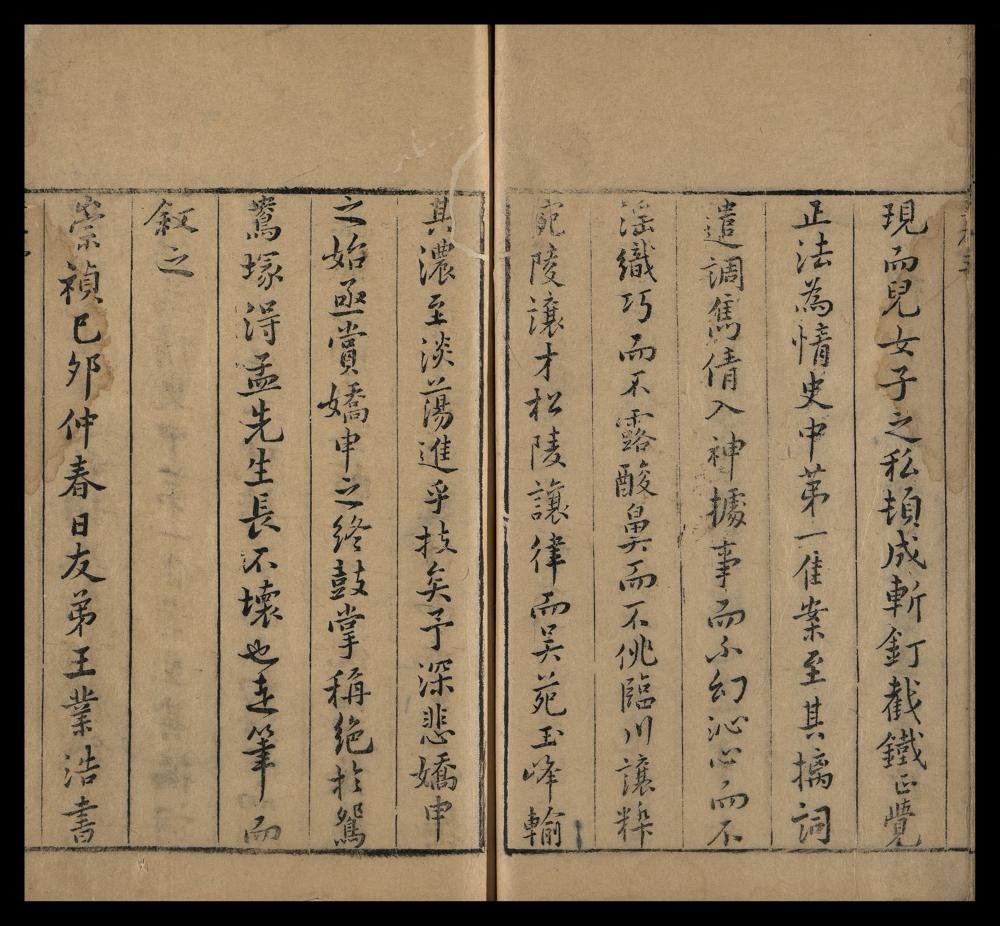 現而兒女子之私頓成斬釘截鐵正覺
正法為情史中第一隹案至其摛詞
遣調雋倩入神據事而不幻沁心而不
淫織巧而不露酸鼻而不佻臨川讓粹
宛陵讓才松陵讓律而吴苑玉峰輸
其濃至淡蕩進乎技矣予深悲嬌申
之始亟賞嬌申之終鼓掌稱絶扵鴛
鴦塚淂孟先生長不壞也走筆而
叙之
崇禎己夘仲春日友弟王業浩書